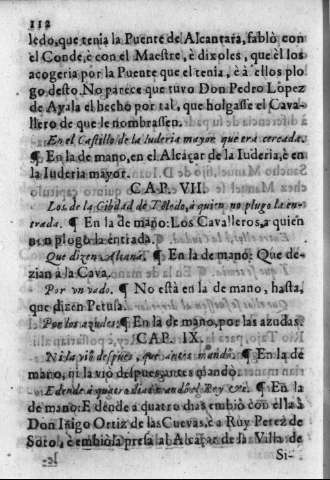 112
ledo, que tenia la Puente de Alcantara, fablò con
el Conde, è con el Maestre, è dixoles, que èl los
acogeria por la Puente que el tenia, è à ellos plo
go desto. No parece que tuvo Don Pedro Lòpez
de Ayala el hecho por tal, que holgasse el Cava-
llero de que le nombrassen.
En el Castillo de la Iuderia mayor que era cercada.
¶ En la de mano, en el Alcáçar de la Iuderia, è en
la Iuderia mayor.
CAP. VII.
Los de la Cibdad de Toledo, à quien no plugo la en-
trada. ¶ En la de mano: Los Cavalleros, a quien
non plogo la entrada.
Que dizen Alcana. ¶ En la de mano: Que de-
zian à la Cava.
Por vn vado. ¶ No està en la de mano, hasta,
que dizen Petusa.
Por los azudes. ¶ En la de mano, por las azudas.
CAP. IX.
Ni la viò despues, que antes mandò. ¶ En la de
mano, ni la viò despues antes mandò.
E dende à quatro dias mandò el Rey &c. ¶ En la
de mano: E dende a quatro dias embiò con ella à
Don Iñigo Ortiz de las Cuevas, è a Rùy Perez de
Soto, è embiòla presa al Alcaçar de la Villa de
Si-